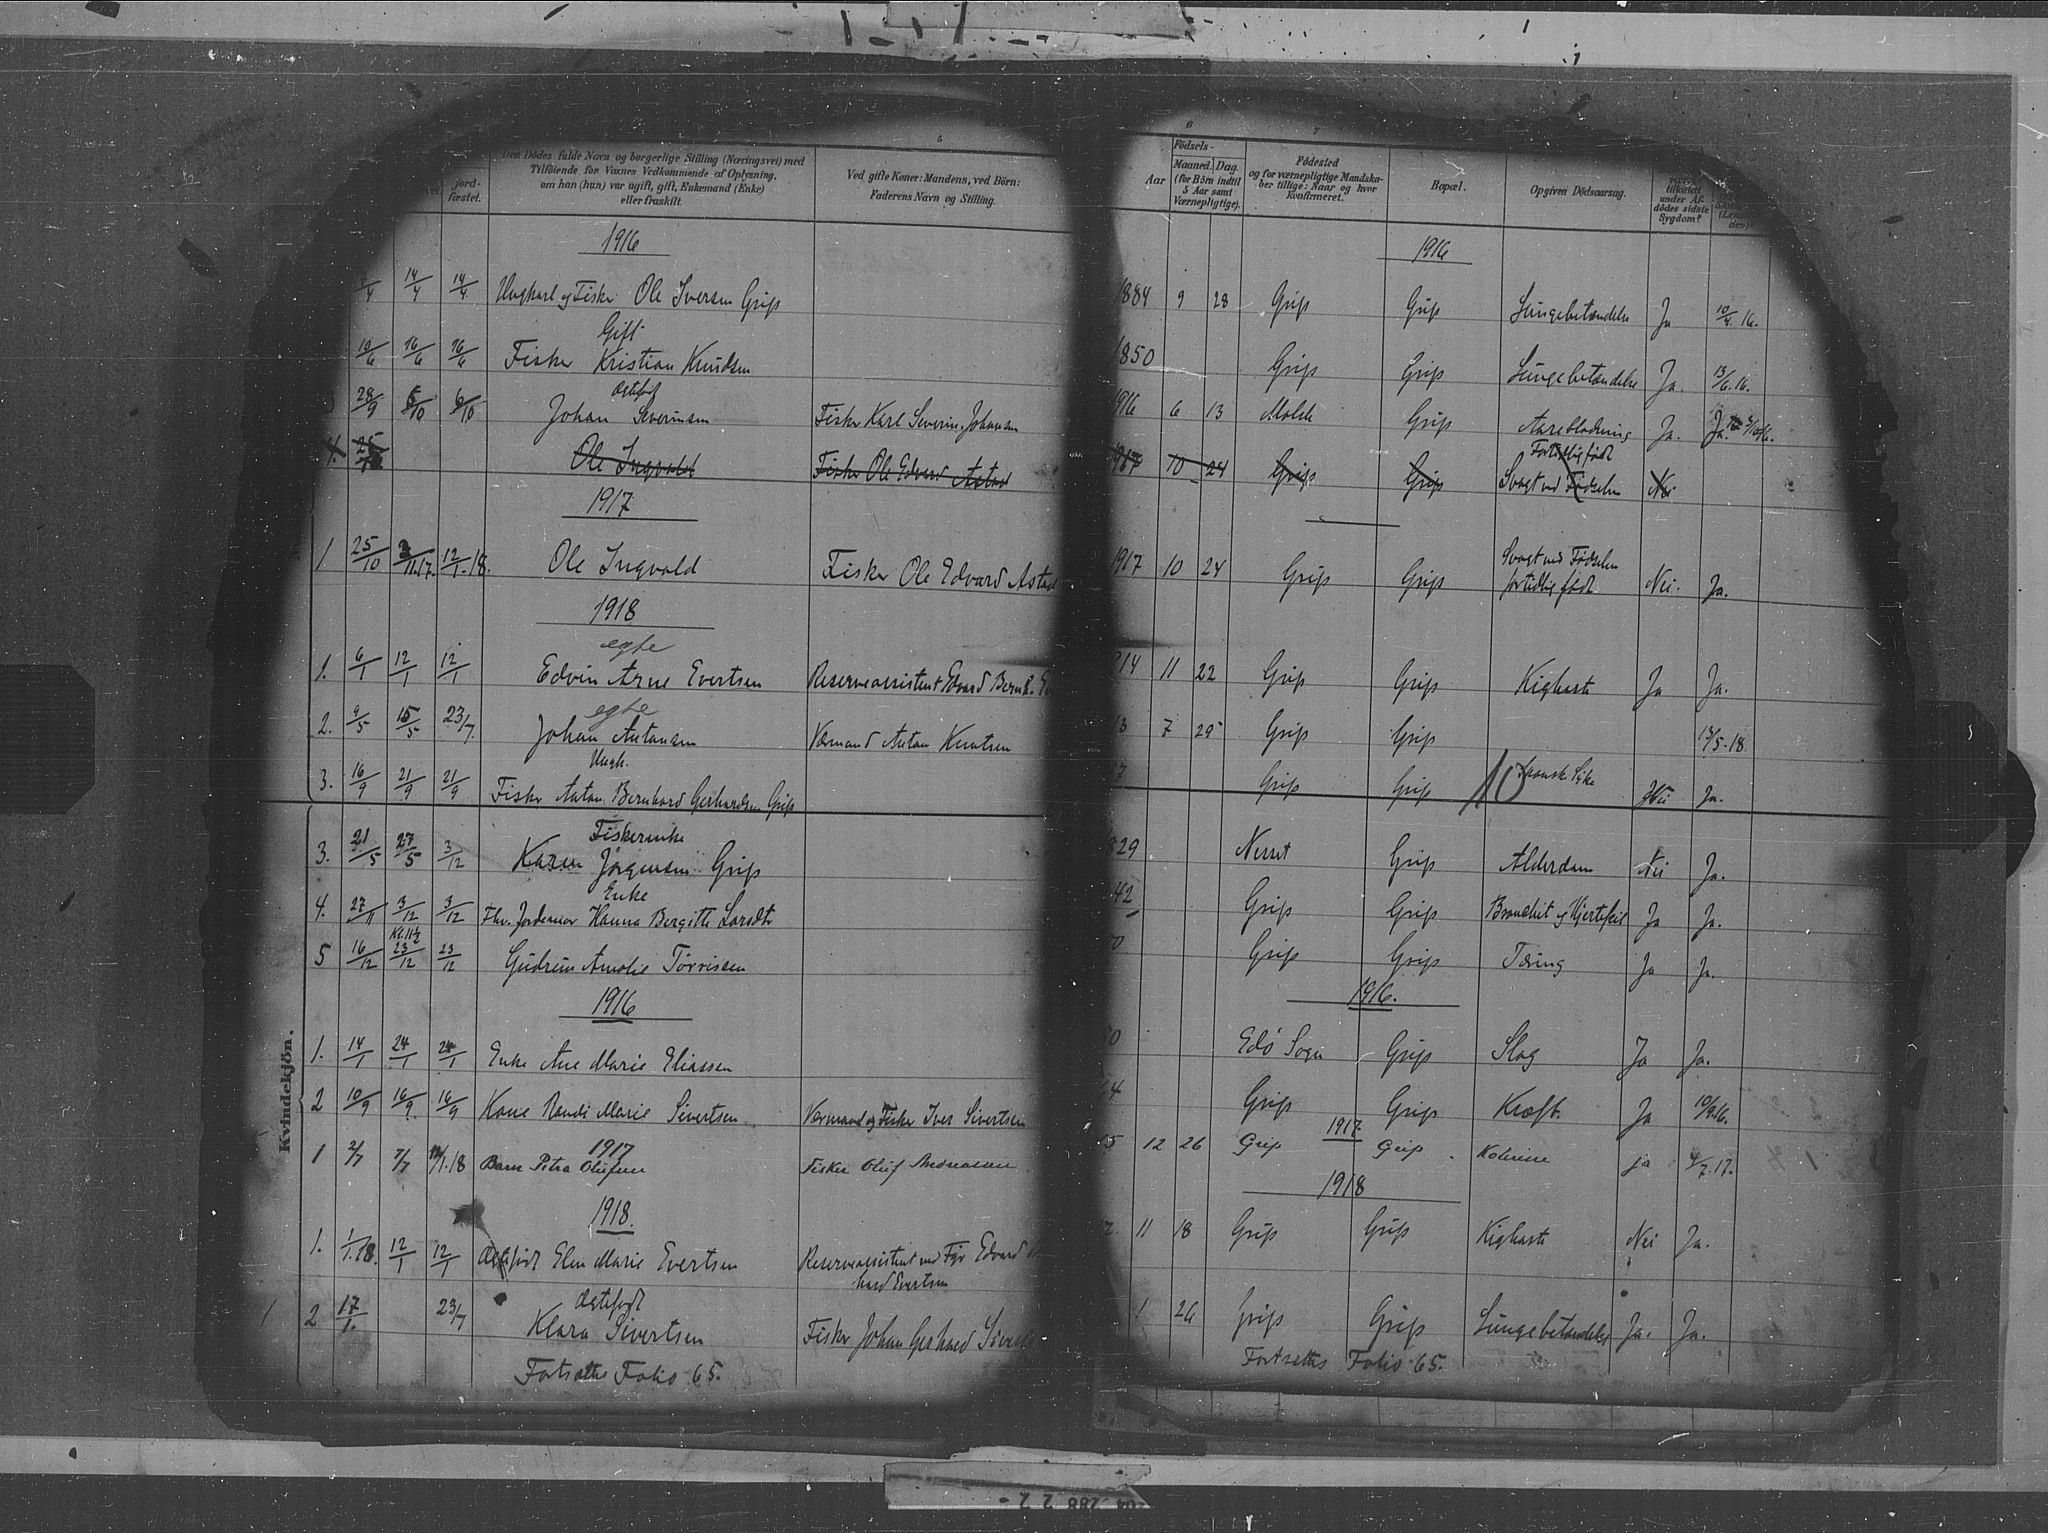 5
Den Dödes fulde Navn og borgerlige Stilling (Næringsvei) med
Tilföiende for Voxnes Vedkommende af Oplysning,
om han (hun) var ugift, gift, Enkemand (Enke)
eller fraskilt.
jord-
fæstet.
Ved gifte Koner: Mandens, ved Börn:
Faderens Navn og Stilling.
1916
/4 14/4 14/4 Ungkarl og Fisker Ole Iversen Grip
Gift
10/6 16/6 16/6 Fisker Kristian Knudsen
Ægtefød
28/9 6/10 6/10 Johan Severinsen Fisker Karl Severin Johansen
4. 25/10 Ole Ingvald Fisker Ole Edvard Astad
1917
1 25/10 3/11.17. 12/1.18. Ole Ingvald Fisker Ole Edvard Astad
1918
egte
1. 6/1 12/1 12/1 Edvin Arne Evertsen Reserveassistent Edvard Bernh.
egte
2. 9/5 15/5 23/7. Johan Antonsen Værmand Anton Knutsen
Ungk.
3. 16/9 21/9 21/9 Fisker Anton Bernhard Gerhardsen Grip
Fiskerenke
3. 21/5 27/5 3/12 Karen Jørgensen Grip
Enke
4. 27/11 3/12 3/12 Fhv. Jordemor Hanna Bergitte Larsdtr
Kl. 11½
5 16/12 23/12 23/12 Gudrun Amalie Tørrissen
1916
Kvindekjön.
1. 14/1 24/1 24/1 Enke Ane Marie Eliassen
2 10/9 16/9. 16/9 Kone Randi Marie Sivertsen. Værmand og Fisker Iver Sivertsen
1917
1 2/7 7/7 12/1.18 Barn Petra Olufsen Fisker Oluf Andreassen
1918.
1. 1/1.18. 12/1 12/1 Ægtefødt Elen Marie Evertsen Reserveassistent ved Fyr Edvard
hard Evertsen
Ægtefødt
2 17/1. 23/7 Klara Sivertsen Fisker Johan Gerhard
Fortsættes Folio 65.
6
7
Aar
Födsels-
Maaned. Dag.
(for Börn indtil
5 Aar samt
Værnepligtige).
Födested
og for værnepligtige Mandska-
ber tillige: Naar og hvor
Konfirmeret.
Bopæl.
Opgiven Dödsaarsag.
tilkaldt
under Af-
dödes sidste
Sygdom?
1916
1884 9 28 Grip Grip Lungebetændelse Ja 10/4.16.
1850 Grip Grip Lungebetændelse Ja. 13/6.16.
1916 6 13 Molde Grip Ja. Ja.
Fortidlig født
1917 10 24 Grip Grip Svagt ved Fødselen Nei
1917 10 24 Grip Grip Svagt ved Fødselen
fortidlig født Nei. Ja.
14 11 22 Grip Grip Kighoste Ja Ja.
13 7 29 Grip Grip 13/5.18.
7 Grip Grip Spansk Syke Nei Ja.
829 Nesset Grip Alderdom Nei Ja.
42 Grip Grip Brandbit og Hjertefeil Ja Ja.
0 Grip Grip Tæring Ja Ja.
1916.
0 Edø Sogn Grip Slag Ja Ja.
4 Grip Grip Kræft. Ja 10/9.16.
1917
5 12 26 Grip Grip Kolerine ja 4/7.17.
1918
11 18 Grip Grip Kighoste Nei Ja.
1 26 Grip Grip Lungebetændelse Ja. Ja.
Fortsættes Folio 65.